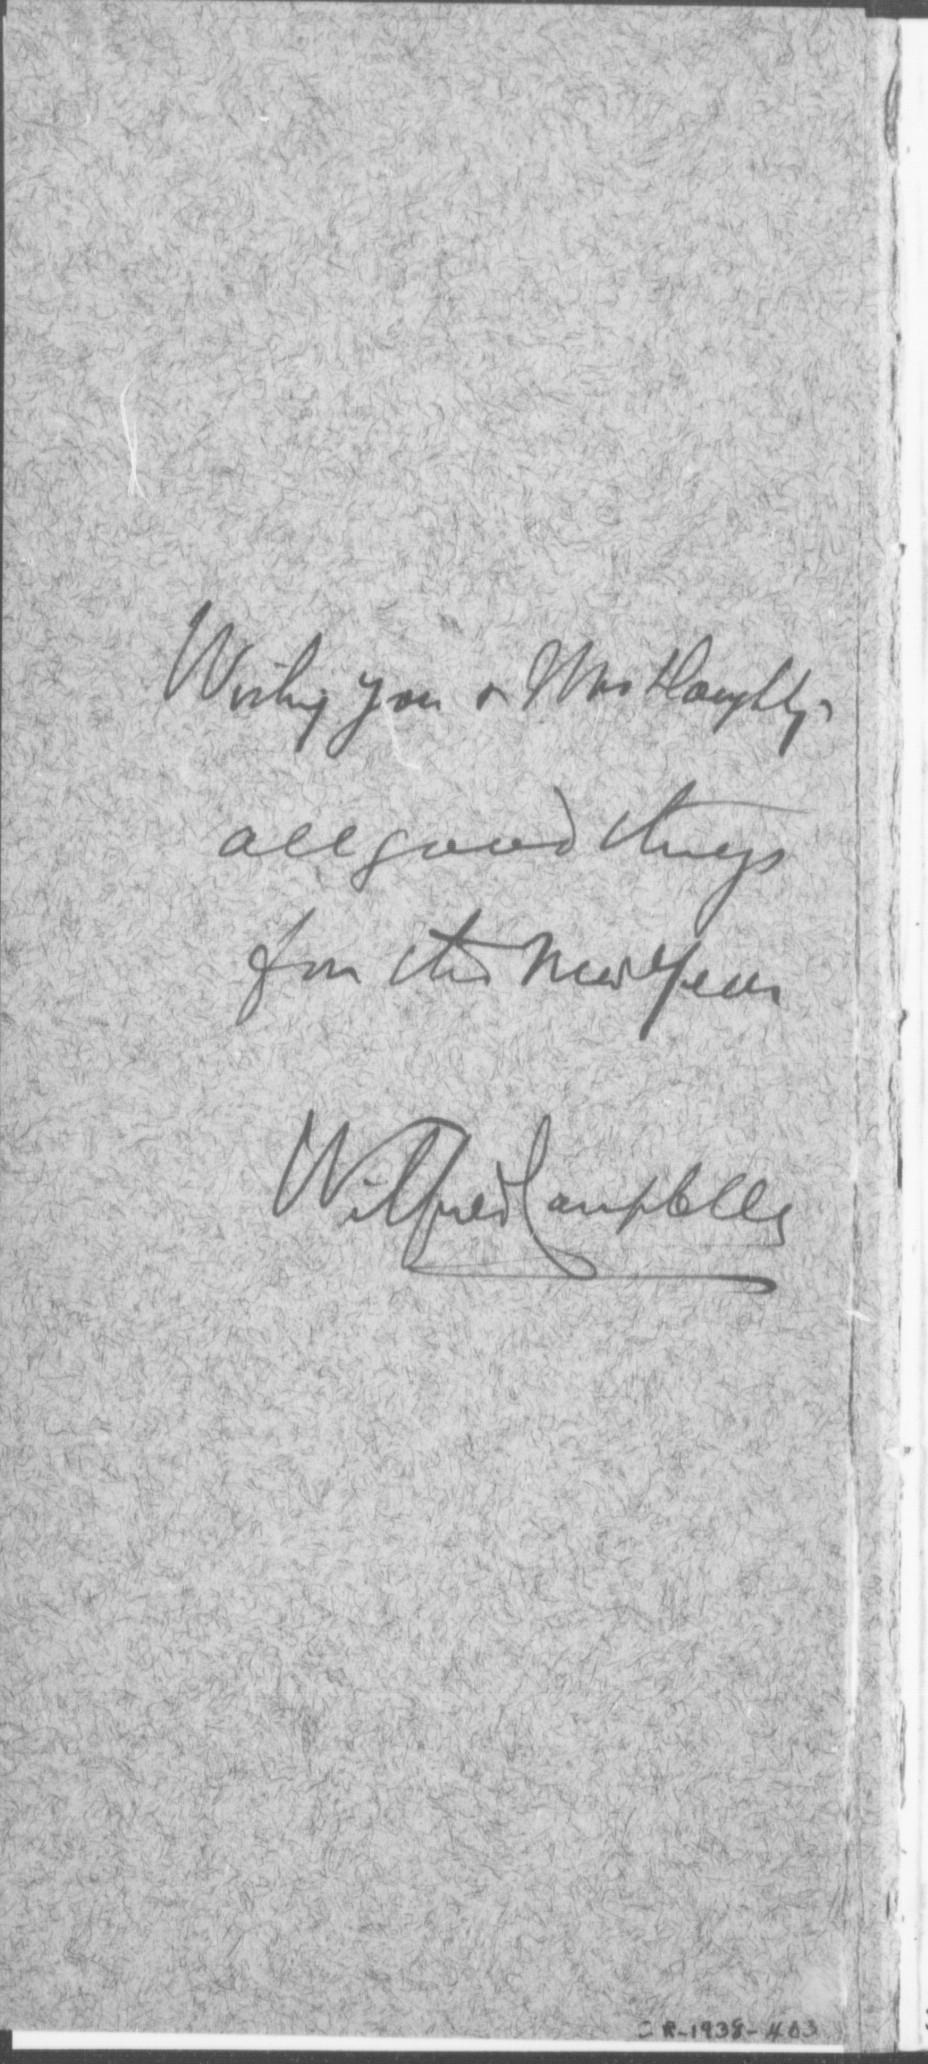 Wishing you & Mrs Doughty
all good things
for the New Year
Wilfred Campbell
R-1938-403